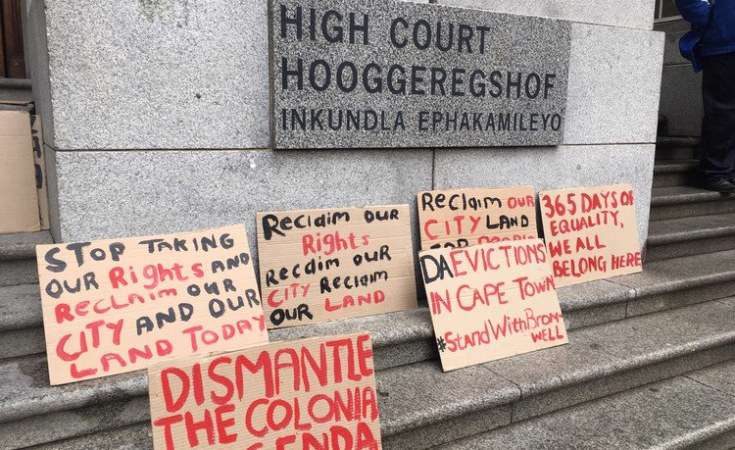 HIGH COURT
HOOGGEREGSHOF
INKUNDLA EPHAKAMILEYO
STOP TAKING
OUR RIGHTS AND
RECLAIM OUR
CITY AND OUR
LAND TODAY
RECLAIM OUR
RIGHTS
RECLAIM OUR
CITY RECLAIM
OUR LAND
RECLAIM OUR
CITY LAND
FOR PEOPLE
365 DAYS OF
EQUALITY,
WE ALL
BELONG HERE
DA EVICTIONS
IN CAPE TOWN
#StandWithBrom-
WELL
DISMANTLE
THE COLONIA